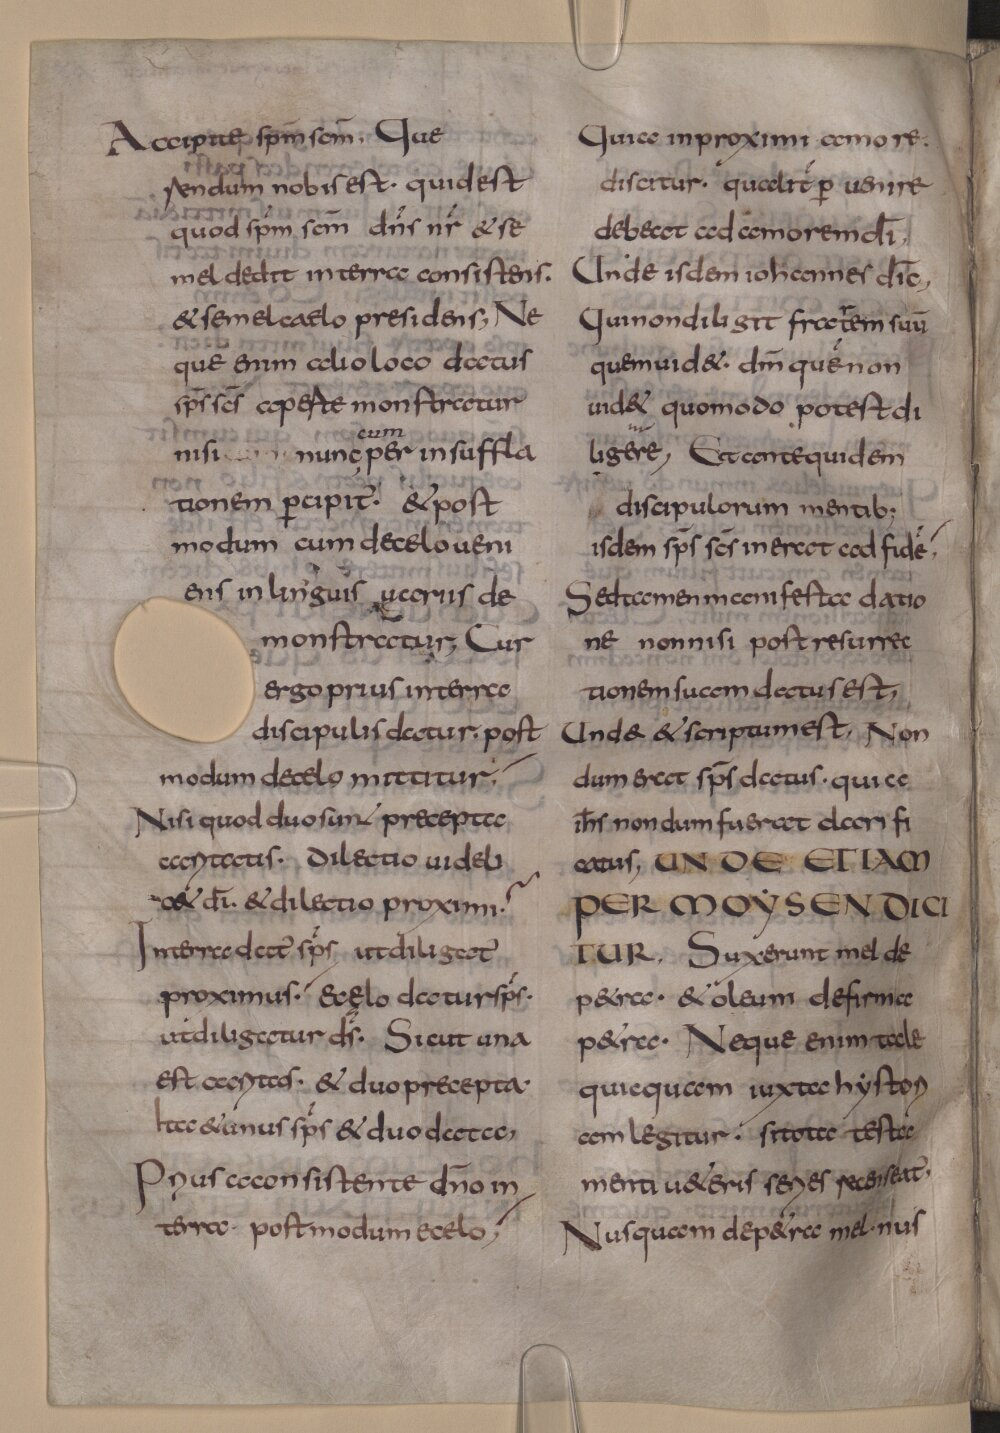 Accipite spm̄ scm̄, Que
rendum nobis est· quid est
quod spm̄ scm̄ dn̄s nr̄ & se
mel dedit in terra consistens·
& semel caelo presidens, Ne
que enim alio loco datus
sp̄s sc̄s aperte monstratur
nisi nunc per insuffla
cum
tionem p̱cipit̄· & post
modum cum de celo ueni
ens in linguis uariis de
monstratur, Cur
ergo prius in terra
discipulis datur· post
modum de celo mittitur,
Nisi quod duo sunt precepta
caritatis· Dilectio uideli
c& dī· & dilectio proximi·
In terra dat̄ sp̄s ut diligat̄
proximus· E celo datur sp̄s·
ut diligatur ds̄· Sicut una
est caritas· & duo precepta·
Ita & unus sp̄s & duo data,
Prius a consistente dn̄o in
terra· post modum e celo,
Quia in proximi amore·
discitur· qualit̄ p̱uenire
debeat ad amorem dī,
Unde isdem iohannes dic̄,
Qui non diligit fratrem suū
quem uid&· dm̄ quē non
uid& quomodo potest di
ligere, Et ante quidem
discipulorum mentib;
isdem sp̄s sc̄s inerat ad fidē,
Sed tamen manifesta datio
ne non nisi post resurrec
tionem suam datus est,
Und& & scriptum est, Non
dum erat sp̄s datus· quia
ih̄s nondum fuerat clarifi
catus, UNDE ETIAM
PER MOYSEN DICI
TUR, Suxerunt mel de
p&ra· & oleum de firma
p&ra· Neque enim tale
quicquam iuxta hystori
am legitur· si tota testa
menti u&eris series recenseat̄,
Nusquam de p&ra mel· nus